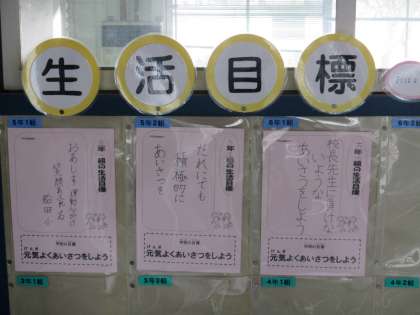 生活目標
5年1組
5年2組
6年1組
年 組の生活目標
年 組の生活目標
年 組の生活目標
だれにでも
積極的に
あいさつを
校長先生に負けな
いような
あいさつをしよう
学校の目標
げんき
元気よくあいさつをしよう
学校の目標
げんき
元気よくあいさつをしよう
学校の目標
げんき
元気よくあいさつをしよう
3年1組
3年2組
4年1組
4年2組